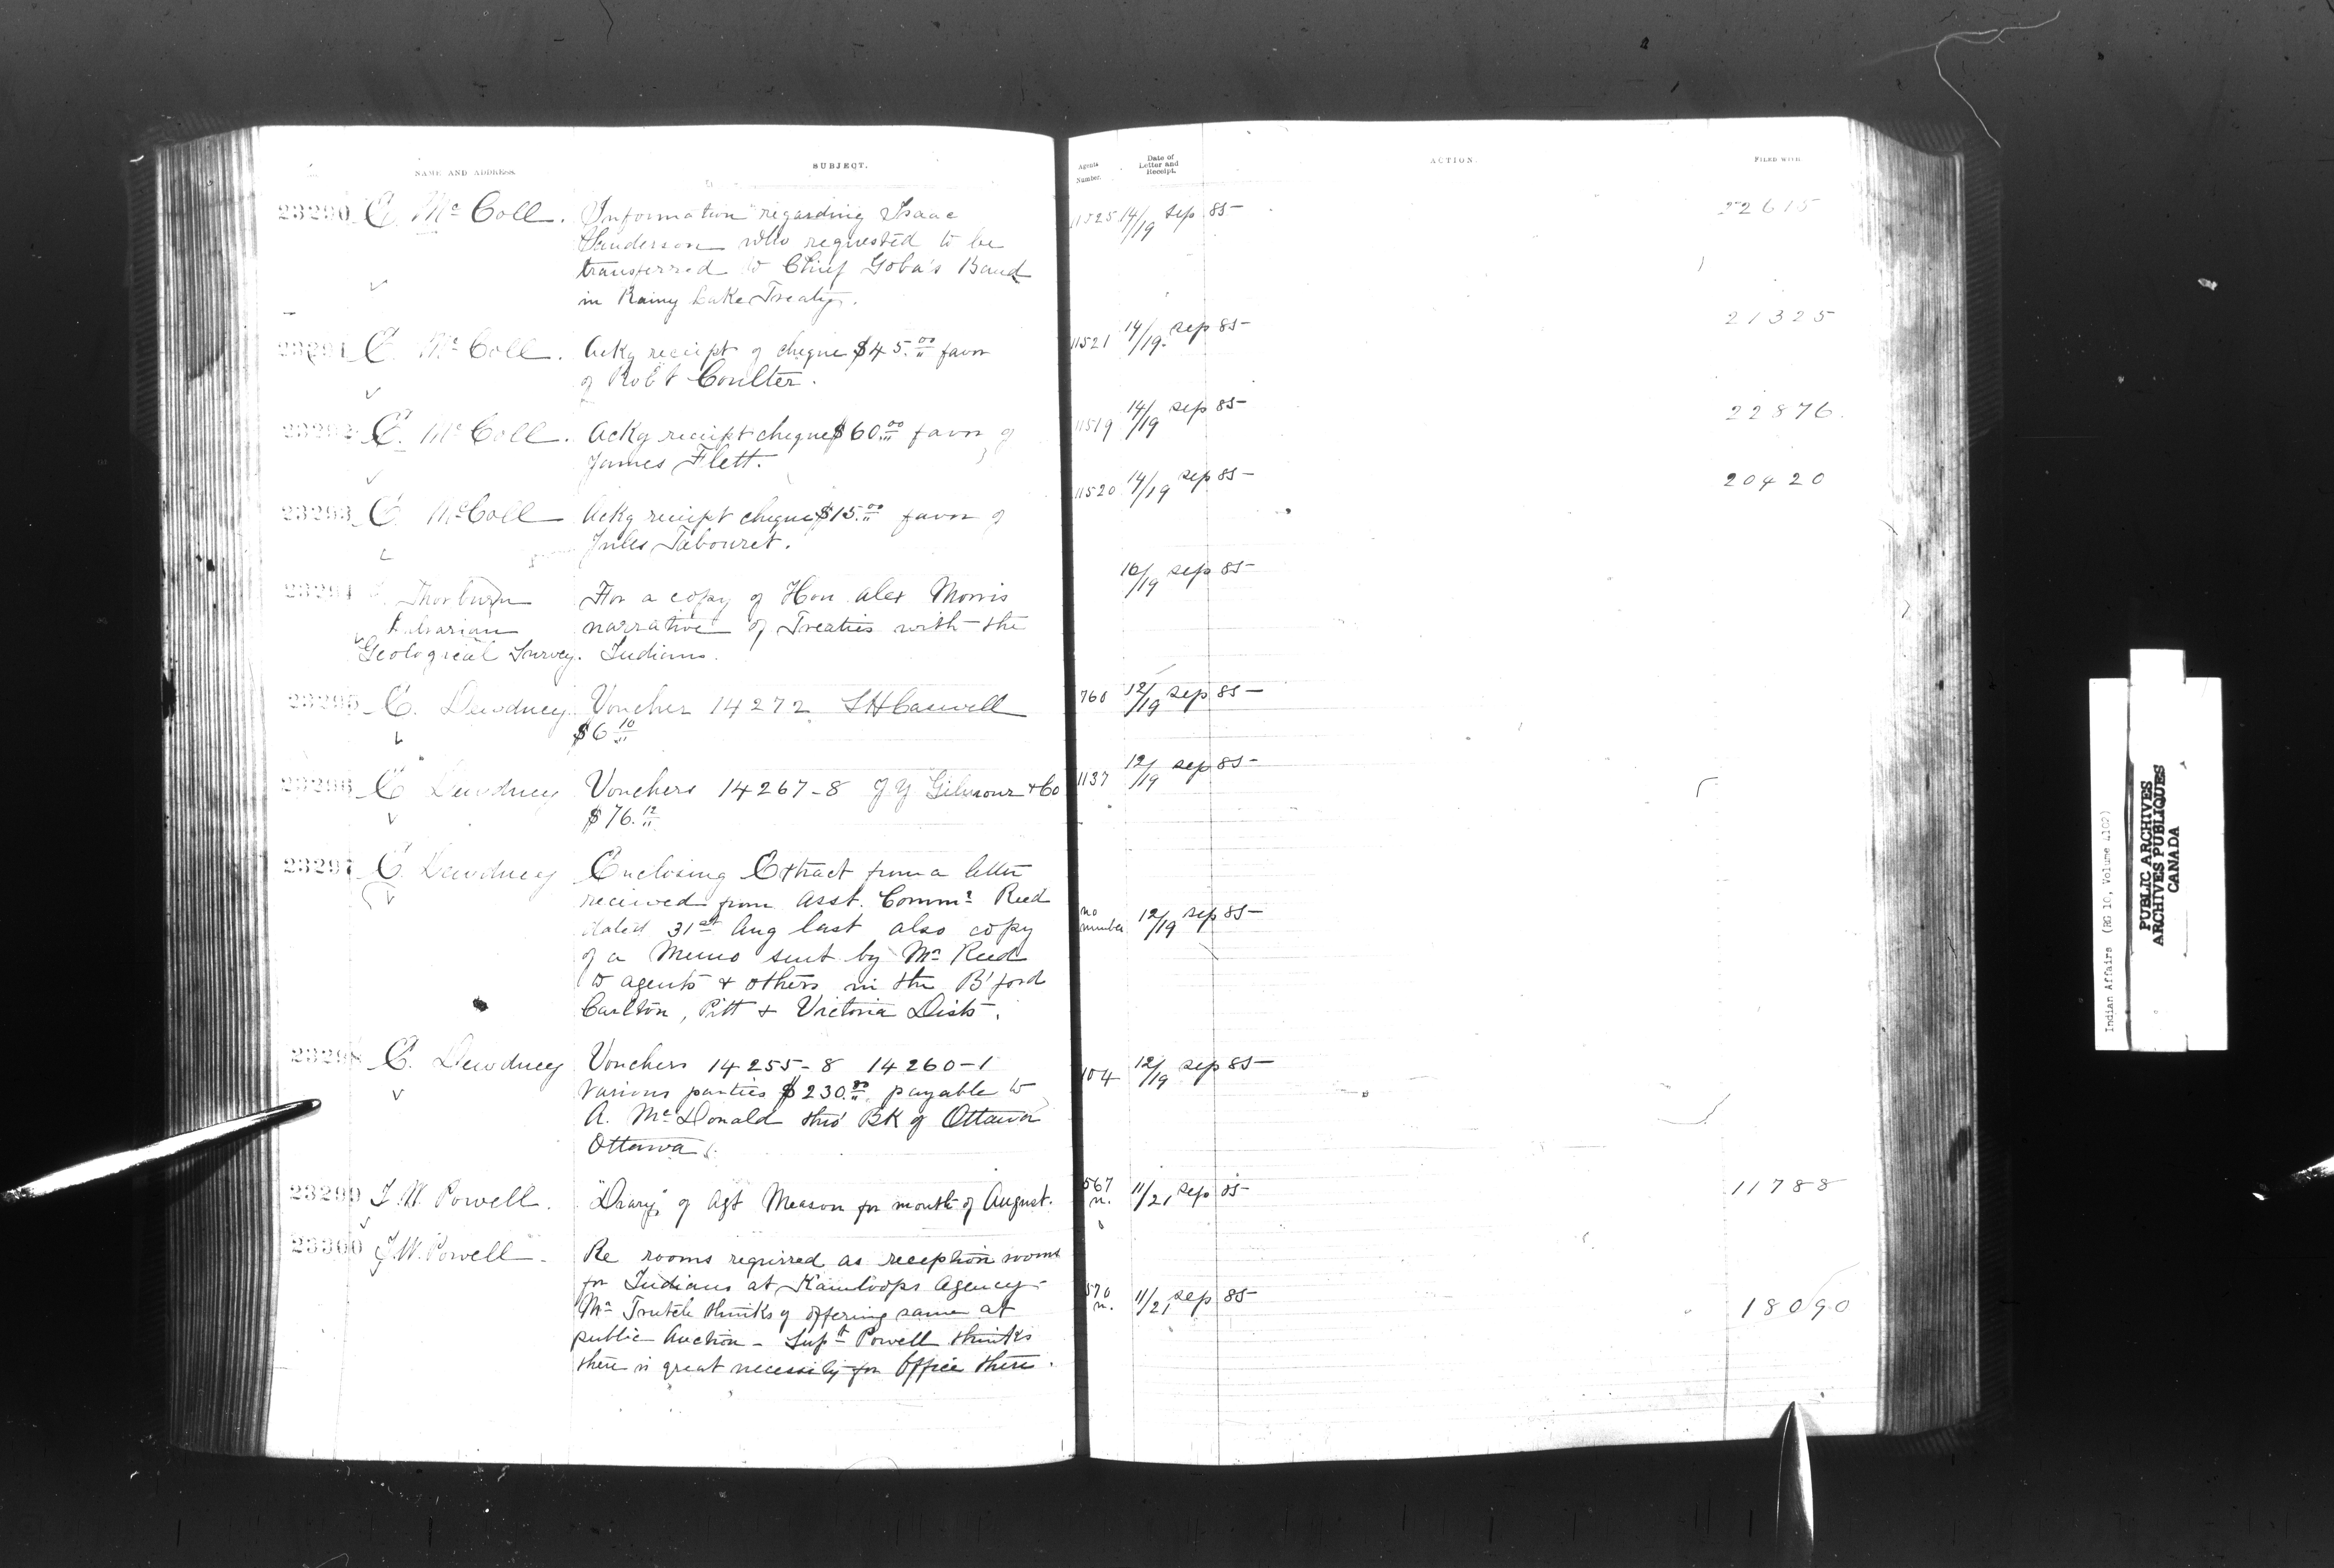 NAME AND ADDRESS
SUBJECT.
Agents Number.
Date of Letter and Receipt.
ACTION.
FILED WITH
23290 E. McColl. Information regarding Isaac 11525 14/19 Sep 85 22615
Henderson who requested to be
transferred to Chief Goba's Band
in Rainy Lake Treaty.
23291 E McColl. Ackg receipt of cheque $45.00 favor 11521 14/19 Sep 85 21325
of Robt Coulter.
23292 E. McColl. Ackg receipt cheque $60.00 favor of 11519 14/19 Sep 85 22876
James Flett.
23293 E. McColl Ackg receipt cheque $15.00 favor of 11520 14/19 Sep 85 20420
Jules Tabouret.
23294 Thorburn For a copy of Hon Alex Morris 16/19 Sep 85
Librarian narrative of Treaties with the
Geological Survey. Indians.
23295 E. Dewdney Voucher 14272 768 12/19 Sep 85
$6.10
23296 E Dewdney Vouchers 14267-8 J Y Gilmour & Co 1137 12/19 Sep 85
$76.12
23297 E. Dewdney Enclosing Extract from a letter
received from Asst. Commr Reed
dated 31st Aug last also copy no number 12/19 Sep 85
of a Memo sent by Mr Reed
to agents & others in the B'ford
Carlton, Pitt & Victoria Dists.
23298 E. Dewdney Vouchers 14255-8 14260-1 104 12/19 Sep 85
Various parties $230.80 payable to
A. McDonald thro' Bk of Ottawa
Ottawa
23299 I. W. Powell. "Diary" of Agt Meason for month of August. 567 n. 11/21 Sep 85 11788
23300 I. W. Powell Re rooms required as reception rooms
for Indians at Kamloops Agency- 570 n. 11/21 Sep 85 18090
Mr Trutch thinks of offering same at
public Auction - Supt Powell thinks
there is great necessity for Office there.
Indian Affairs (RG 10, Volume 4102)
PUBLIC ARCHIVES
ARCHIVES PUBLIQUES
CANADA